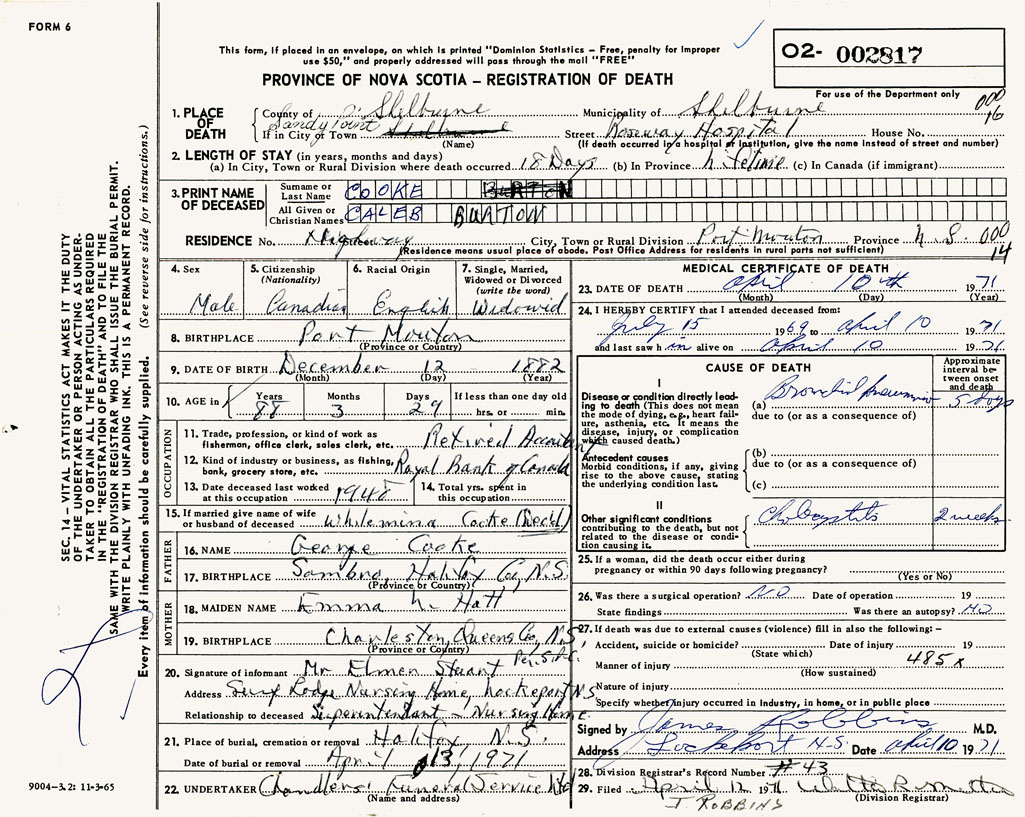 FORM 6
This form, if placed in an envelope, on which is printed "Dominion Statistics – Free, penalty for improper
use $50," and properly addressed will pass through the mail "FREE"
PROVINCE OF NOVA SCOTIA – REGISTRATION OF DEATH
O2- 002817
For use of the Department only
000
16
1. PLACE OF DEATH
County of Shelburne Municipality of Shelburne
Sandy Point
If in City or Town Shelburne Street Roseway Hospital House No.
(Name) (If death occurred in a hospital or institution, give the name instead of street and number)
2. LENGTH OF STAY (in years, months and days)
(a) In City, Town or Rural Division where death occurred 18 Days (b) In Province (c) In Canada (if immigrant)
3. PRINT NAME OF DECEASED
Surname or Last Name COOKE BURTON
All Given or Christian Names CALEB BURTON
RESIDENCE No. Highway City, Town or Rural Division Port Mouton Province N.S. 000
14
(Residence means usual place of abode. Post Office Address for residents in rural parts not sufficient)
4. Sex
Male
5. Citizenship (Nationality)
Canadian
6. Racial Origin
English
7. Single, Married, Widowed or Divorced (write the word)
Widowid
8. BIRTHPLACE Port Mouton
(Province or Country)
9. DATE OF BIRTH December 12 1882
(Month) (Day) (Year)
10. AGE in Years 88 Months 3 Days 29 If less than one day old hrs. or min.
OCCUPATION
11. Trade, profession, or kind of work as fisherman, office clerk, sales clerk, etc. Retired
12. Kind of industry or business, as fishing, bank, grocery store, etc. Royal Bank of Canada
13. Date deceased last worked at this occupation 1948
14. Total yrs. spent in this occupation
15. If married give name of wife or husband of deceased Whilemina Cooke (Decd)
FATHER
16. NAME George Cooke
17. BIRTHPLACE Sambro Halifax Co, N.S.
(Province or Country)
MOTHER
18. MAIDEN NAME Emma N. Hatt
19. BIRTHPLACE Charleston, Queens Co, N.S.
(Province or Country)
20. Signature of informant Mr Elmer Stuart
Address Surf Lodge Nursing Home, Lockeport N.S
Relationship to deceased Superintendant – Nursing Home
21. Place of burial, cremation or removal Halifax N.S.
Date of burial or removal April 13, 1971
22. UNDERTAKER Chandlers' Funeral Service Ltd
(Name and address)
MEDICAL CERTIFICATE OF DEATH
23. DATE OF DEATH April 10th 1971
(Month) (Day) (Year)
24. I HEREBY CERTIFY that I attended deceased from:
July 15 1969 to April 10 1971
and last saw him alive on April 10 1971
CAUSE OF DEATH
Approximate interval between onset and death
I
Disease or condition directly leading to death (This does not mean the mode of dying, e.g., heart failure, asthenia, etc. It means the disease, injury, or complication which caused death.)
(a) Bronchopneumonia 5 days
due to (or as a consequence of)
Antecedent causes
Morbid conditions, if any, giving rise to the above cause, stating the underlying condition last.
(b)
due to (or as a consequence of)
(c)
II
Other significant conditions contributing to the death, but not related to the disease or condition causing it.
2 weeks
25. If a woman, did the death occur either during pregnancy or within 90 days following pregnancy?
(Yes or No)
26. Was there a surgical operation? NO Date of operation 19
State findings Was there an autopsy? NO
27. If death was due to external causes (violence) fill in also the following: –
Accident, suicide or homicide? Date of injury 19
(State which)
Manner of injury 485x
(How sustained)
Nature of injury
Specify whether injury occurred in Industry, in home, or in public place
Signed by James Robbins M.D.
Address Lockeport N.S. Date April 10 1971
28. Division Registrar's Record Number #43
29. Filed April 12 1971
(Division Registrar)
J. ROBBINS
SEC. 14 – VITAL STATISTICS ACT MAKES IT THE DUTY
OF THE UNDERTAKER OR PERSON ACTING AS UNDER-
TAKER TO OBTAIN ALL THE PARTICULARS REQUIRED
IN THE "REGISTRATION OF DEATH" AND TO FILE THE
SAME WITH THE DIVISION REGISTRAR WHO SHALL ISSUE THE BURIAL PERMIT.
WRITE PLAINLY WITH UNFADING INK. THIS IS A PERMANENT RECORD.
Every item of information should be carefully supplied. (See reverse side for instructions.)
9004-3.2: 11-3-65